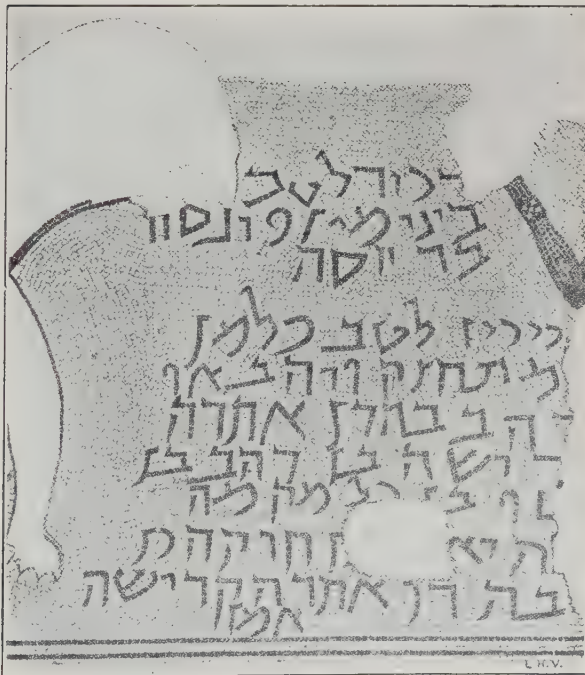 כיר לטב
בינימין פרנסוו
בר יוסה
כירין לטב כל מן
תחזק ויהב או
הב בהדן אתרה
ישה בן דהב בן
ף ב מקמה
היא ן חזיקהת
בהדן אתרהקדישה
אמן
L.H.V.